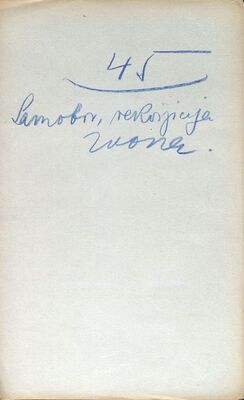 45
Samobor, rekvizicija
zvona.